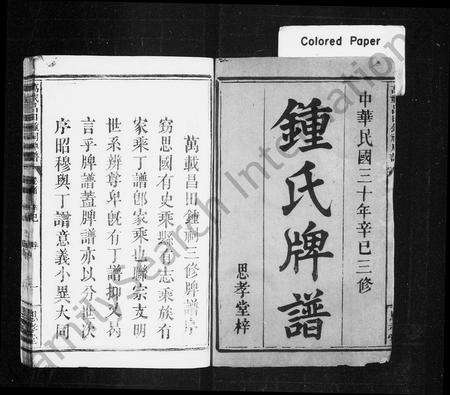 Colored Paper
中華民國三十年辛巳三修
鍾氏牌譜
思孝堂梓
萬載昌田鍾祠三修牌譜序
窃思國有史乘縣有志乘族有
家乘丁譜即家乘也聯宗支明
世系辨尊卑既有丁譜抑又
言乎牌譜蓋牌譜亦以分世次
序昭穆與丁譜意義小異大同
FamilySearch International